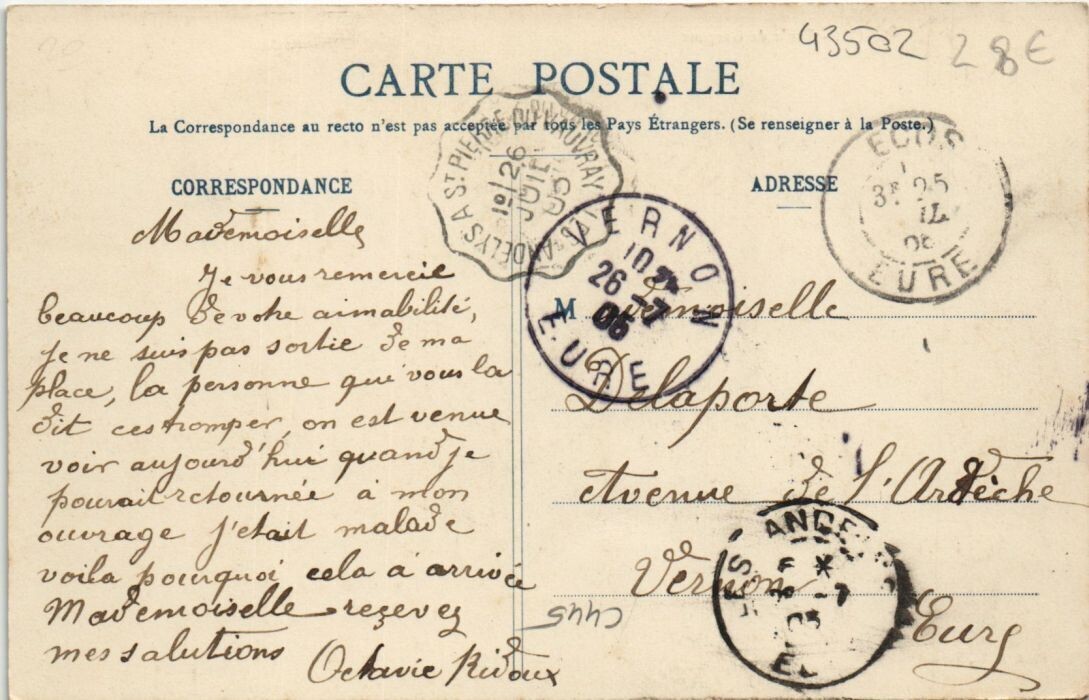 43502 28€
CARTE POSTALE
La Correspondance au recto n'est pas acceptée par tous les Pays Étrangers. (Se renseigner à la Poste.)
CORRESPONDANCE
Mademoiselle
Je vous remercie
beaucoup de votre aimabilité,
Je ne suis pas sortie de ma
place, la personne que vous la
dit ces tromper, on est venue
voir aujourd'hui quand je
pourait retournée à mon
ouvrage j'était malade
voila pourquoi cela à arrivée
Mademoiselle reçevez
mes salutions
Octavie Ridoux
ADRESSE
Mademoiselle
Delaporte
Avenue de l'Ardèche
Vernon
Eure
5445
LES ANDELYS A ST PIERRE DU VAUVRAY
26
JUIL
05
VERNON
26 -7
EURE
ECOS
25
EURE
LES ANDE